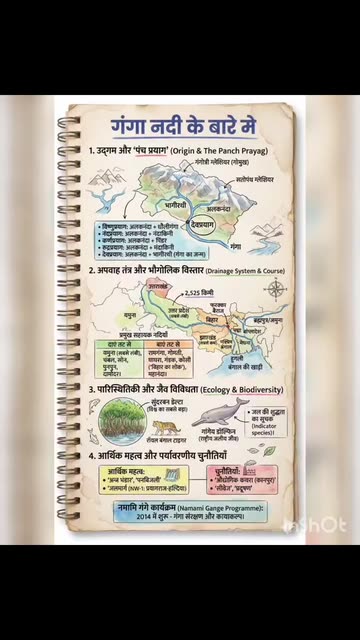 गंगा नदी के बारे मे
1. उद्गम और 'पंच प्रयाग' (Origin & The Panch Prayag)
गंगोत्री ग्लेशियर (गोमुख)
सतोपंथ ग्लेशियर
भागीरथी
अलकनंदा
देवप्रयाग
गंगा
• विष्णुप्रयाग: अलकनंदा + धौलीगंगा
• नंदप्रयाग: अलकनंदा + नंदाकिनी
• कर्णप्रयाग: अलकनंदा + पिंडर
• रुद्रप्रयाग: अलकनंदा + मंदाकिनी
• देवप्रयाग: अलकनंदा + भागीरथी (गंगा का जन्म)
2. अपवाह तंत्र और भौगोलिक विस्तार (Drainage System & Course)
उत्तराखंड
2,525 किमी
यमुना
उत्तर प्रदेश
(सबसे लंबी)
फरक्का
बैराज
ब्रह्मपुत्र/जमुना
बिहार
पद्मा
बांग्लादेश
झारखंड
(सबसे कम)
पश्चिम
बंगाल
हुगली
बंगाल की खाड़ी
प्रमुख सहायक नदियाँ
दाएं तट से
बाएं तट से
यमुना (सबसे लंबी),
चंबल, सोन,
पुनपुन,
दामोदर।
रामगंगा, गोमती,
घाघरा, गंडक, कोसी
('बिहार का शोक'),
महानंदा।
3. पारिस्थितिकी और जैव विविधता (Ecology & Biodiversity)
सुंदरबन डेल्टा
(विश्व का सबसे बड़ा)
रॉयल बंगाल टाइगर
गांगेय डॉल्फिन
(राष्ट्रीय जलीय जीव)
• जल की शुद्धता
का सूचक
(Indicator
species)।
4. आर्थिक महत्व और पर्यावरणीय चुनौतियाँ
आर्थिक महत्व:
• 'अन्न भंडार', 'पनबिजली'
• 'जलमार्ग (NW-1: प्रयागराज-हल्दिया)
चुनौतियाँ:
• 'औद्योगिक कचरा (कानपुर)'
• 'सीवेज', 'प्रदूषण'
नमामि गंगे कार्यक्रम (Namami Gange Programme):
2014 में शुरू - गंगा संरक्षण और कायाकल्प।
InShOt